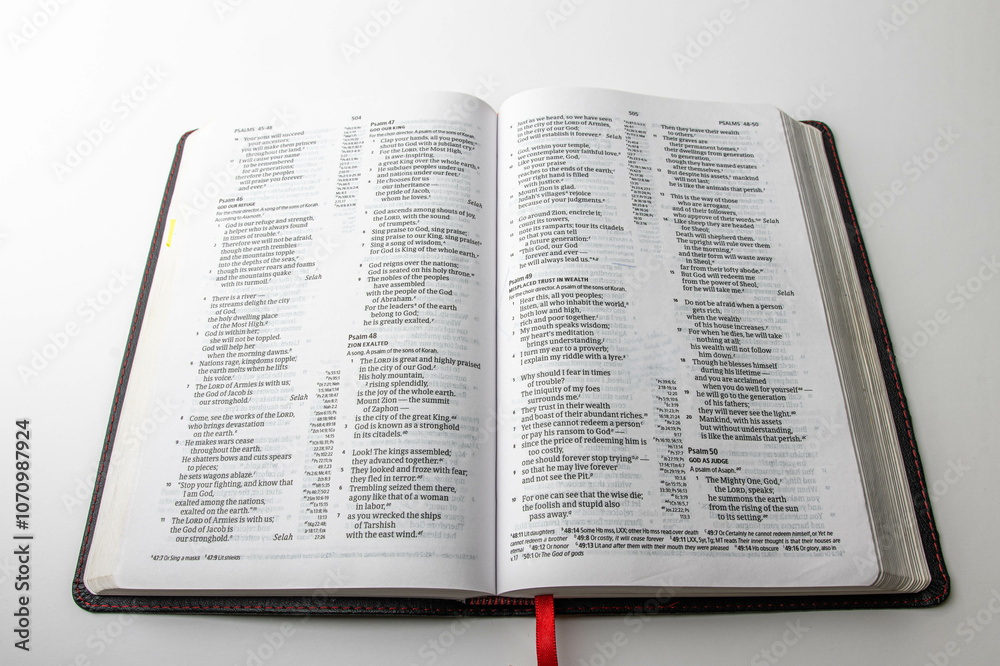 PSALMS 45-48
504
16 Your sons will succeed
your ancestors;
you will make them princes
throughout the land.
17 I will cause your name
to be remembered
for all generations;
therefore the peoples
will praise you forever
and ever.
Psalm 46
GOD OUR REFUGE
For the choir director. A song of the sons of Korah.
According to Alamoth.
1 God is our refuge and strength,
a helper who is always found
in times of trouble.
2 Therefore we will not be afraid,
though the earth trembles
and the mountains topple
into the depths of the seas,
3 though its water roars and foams
and the mountains quake
with its turmoil.
Selah
4 There is a river —
its streams delight the city
of God,
the holy dwelling place
of the Most High.
5 God is within her;
she will not be toppled.
God will help her
when the morning dawns.
6 Nations rage, kingdoms topple;
the earth melts when he lifts
his voice.
7 The LORD of Armies is with us;
the God of Jacob is
our stronghold.
Selah
8 Come, see the works of the LORD,
who brings devastation
on the earth.
9 He makes wars cease
throughout the earth.
He shatters bows and cuts spears
to pieces;
he sets wagons ablaze.
10 "Stop your fighting, and know that
I am God,
exalted among the nations,
exalted on the earth."
11 The LORD of Armies is with us;
the God of Jacob is
our stronghold.
Selah
Psalm 47
GOD OUR KING
For the choir director. A psalm of the sons of Korah.
1 Clap your hands, all you peoples;
shout to God with a jubilant cry.
2 For the LORD, the Most High,
is awe-inspiring,
a great King over the whole earth.
3 He subdues peoples under us
and nations under our feet.
4 He chooses for us
our inheritance —
the pride of Jacob,
whom he loves.
Selah
5 God ascends among shouts of joy,
the LORD, with the sound
of trumpets.
6 Sing praise to God, sing praise;
sing praise to our King, sing praise!
7 Sing a song of wisdom,
for God is King of the whole earth.
8 God reigns over the nations;
God is seated on his holy throne.
9 The nobles of the peoples
have assembled
with the people of the God
of Abraham.
For the leaders of the earth
belong to God;
he is greatly exalted.
Psalm 48
ZION EXALTED
A song. A psalm of the sons of Korah.
1 The LORD is great and highly praised
in the city of our God.
His holy mountain,
2 rising splendidly,
is the joy of the whole earth.
Mount Zion — the summit
of Zaphon —
is the city of the great King.
3 God is known as a stronghold
in its citadels.
4 Look! The kings assembled;
they advanced together.
5 They looked and froze with fear;
they fled in terror.
6 Trembling seized them there,
agony like that of a woman
in labor,
7 as you wrecked the ships
of Tarshish
with the east wind.
47:7 Or Sing a maskil 47:9 Lit shields
505
PSALMS 48-50
8 Just as we heard, so we have seen
in the city of the LORD of Armies,
in the city of our God;
God will establish it forever.
Selah
9 God, within your temple,
we contemplate your faithful love.
10 Like your name, God,
so your praise
reaches to the ends of the earth;
your right hand is filled
with justice.
11 Mount Zion is glad.
Judah's villages rejoice
because of your judgments.
12 Go around Zion, encircle it;
count its towers,
13 note its ramparts; tour its citadels
so that you can tell
a future generation:
14 "This God, our God
forever and ever —
he will always lead us."
Psalm 49
MISPLACED TRUST IN WEALTH
For the choir director. A psalm of the sons of Korah.
1 Hear this, all you peoples;
listen, all who inhabit the world,
2 both low and high,
rich and poor together.
3 My mouth speaks wisdom;
my heart's meditation
brings understanding.
4 I turn my ear to a proverb;
I explain my riddle with a lyre.
5 Why should I fear in times
of trouble?
The iniquity of my foes
surrounds me.
6 They trust in their wealth
and boast of their abundant riches.
7 Yet these cannot redeem a person
or pay his ransom to God —
8 since the price of redeeming him is
too costly,
one should forever stop trying —
9 so that he may live forever
and not see the Pit.
10 For one can see that the wise die;
the foolish and stupid also
pass away.
Then they leave their wealth
to others.
11 Their graves are
their permanent homes,
their dwellings from generation
to generation,
though they have named estates
after themselves.
12 But despite his assets, mankind
will not last;
he is like the animals that perish.
13 This is the way of those
who are arrogant,
and of their followers,
who approve of their words.
Selah
14 Like sheep they are headed
for Sheol;
Death will shepherd them.
The upright will rule over them
in the morning,
and their form will waste away
in Sheol,
far from their lofty abode.
15 But God will redeem me
from the power of Sheol,
for he will take me.
Selah
16 Do not be afraid when a person
gets rich,
when the wealth
of his house increases.
17 For when he dies, he will take
nothing at all;
his wealth will not follow
him down.
18 Though he blesses himself
during his lifetime —
and you are acclaimed
when you do well for yourself —
19 he will go to the generation
of his fathers;
they will never see the light.
20 Mankind, with his assets
but without understanding,
is like the animals that perish.
Psalm 50
GOD AS JUDGE
A psalm of Asaph.
1 The Mighty One, God,
the LORD, speaks;
he summons the earth
from the rising of the sun
to its setting.
48:11 Lit daughters 48:14 Some Hb mss, LXX; other Hb mss read over death 49:7 Or Certainly he cannot redeem himself, or Yet he cannot redeem a brother 49:8 Or costly, it will cease forever 49:11 LXX, Syr, Tg; MT reads Their inner thought is that their houses are eternal 49:12 Or honor 49:13 Lit and after them with their mouth they were pleased 49:14 Hb obscure 49:16 Or glory, also in v.17 50:1 Or The God of gods
Adobe Stock | #1070987924